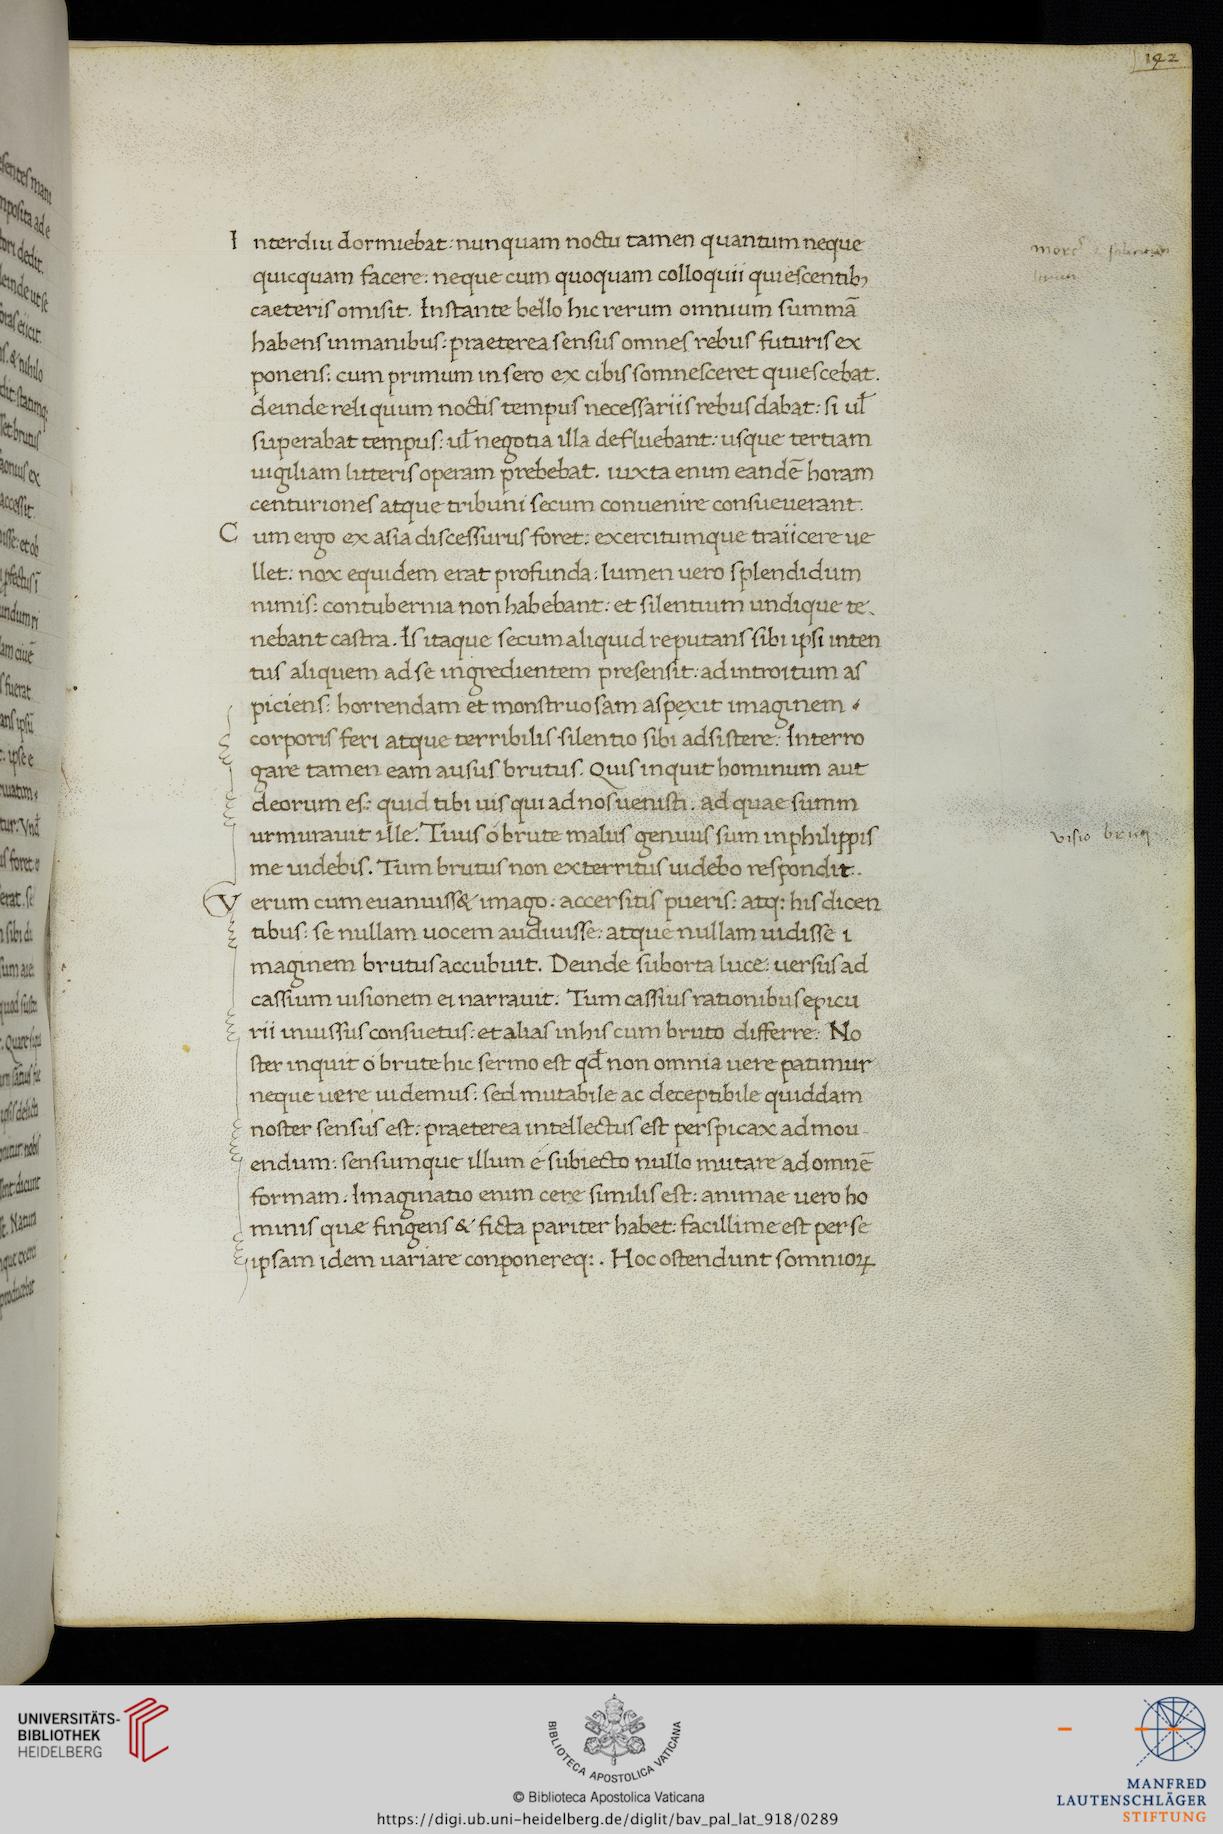 142
Interdiu dormiebat: nunquam noctu tamen quantum neque
quicquam facere: neque cum quoquam colloquii quiescentibꝫ
caeteris omisit. Instante bello hic rerum omnium summā
habens in manibus: praeterea sensus omnes rebus futuris ex
ponens: cum primum in sero ex cibis somnesceret quiescebat.
deinde reliquum noctis tempus necessariis rebus dabat: si ul̃
superabat tempus: ul̃ negotia illa defluebant: usque tertiam
uigiliam litteris operam prebebat. iuxta enim eandē horam
centuriones atque tribuni secum conuenire consueuerant.
Cum ergo ex asia discessurus foret: exercitumque traiicere ue
llet: nox equidem erat profunda: lumen uero splendidum
nimis: contubernia non habebant: et silentium undique te
nebant castra. Is itaque secum aliquid reputans sibi ipsi inten
tus aliquem ad se ingredientem presensit: ad introitum as
piciens: horrendam et monstruosam aspexit imaginem
corporis feri atque terribilis silentio sibi adsistere: Interro
gare tamen eam ausus brutus. Quis inquit hominum aut
deorum es: quid tibi uis qui ad nos uenisti. ad quae summ
urmurauit ille. Tuus ó brute malus genius sum in philippis
me uidebis. Tum brutus non exterritus uidebo respondit.
Verum cum euanuiss& imago: accersitis pueris: atq: his dicen
tibus: se nullam uocem audiuisse: atque nullam uidisse i
maginem brutus accubuit. Deinde suborta luce: uersus ad
cassium uisionem ei narrauit. Tum cassius rationibus epicu
rii inuissus consuetus: et alias in his cum bruto differre: No
ster inquit ó brute hic sermo est qđ non omnia uere patimur
neque uere uidemus: sed mutabile ac deceptibile quiddam
noster sensus est: praeterea intellectus est perspicax ad mou
endum: sensumque illum é subiecto nullo mutare ad omnē
formam. Imaginatio enim cere similis est: animae uero ho
minis que fingens & ficta pariter habet: facillime est per se
ipsam idem uariare conponereq:. Hoc ostendunt somnioꝝ
visio bruti
UNIVERSITÄTS-
BIBLIOTHEK
HEIDELBERG
BIBLIOTECA APOSTOLICA VATICANA
© Biblioteca Apostolica Vaticana
https://digi.ub.uni-heidelberg.de/diglit/bav_pal_lat_918/0289
MANFRED
LAUTENSCHLÄGER
STIFTUNG